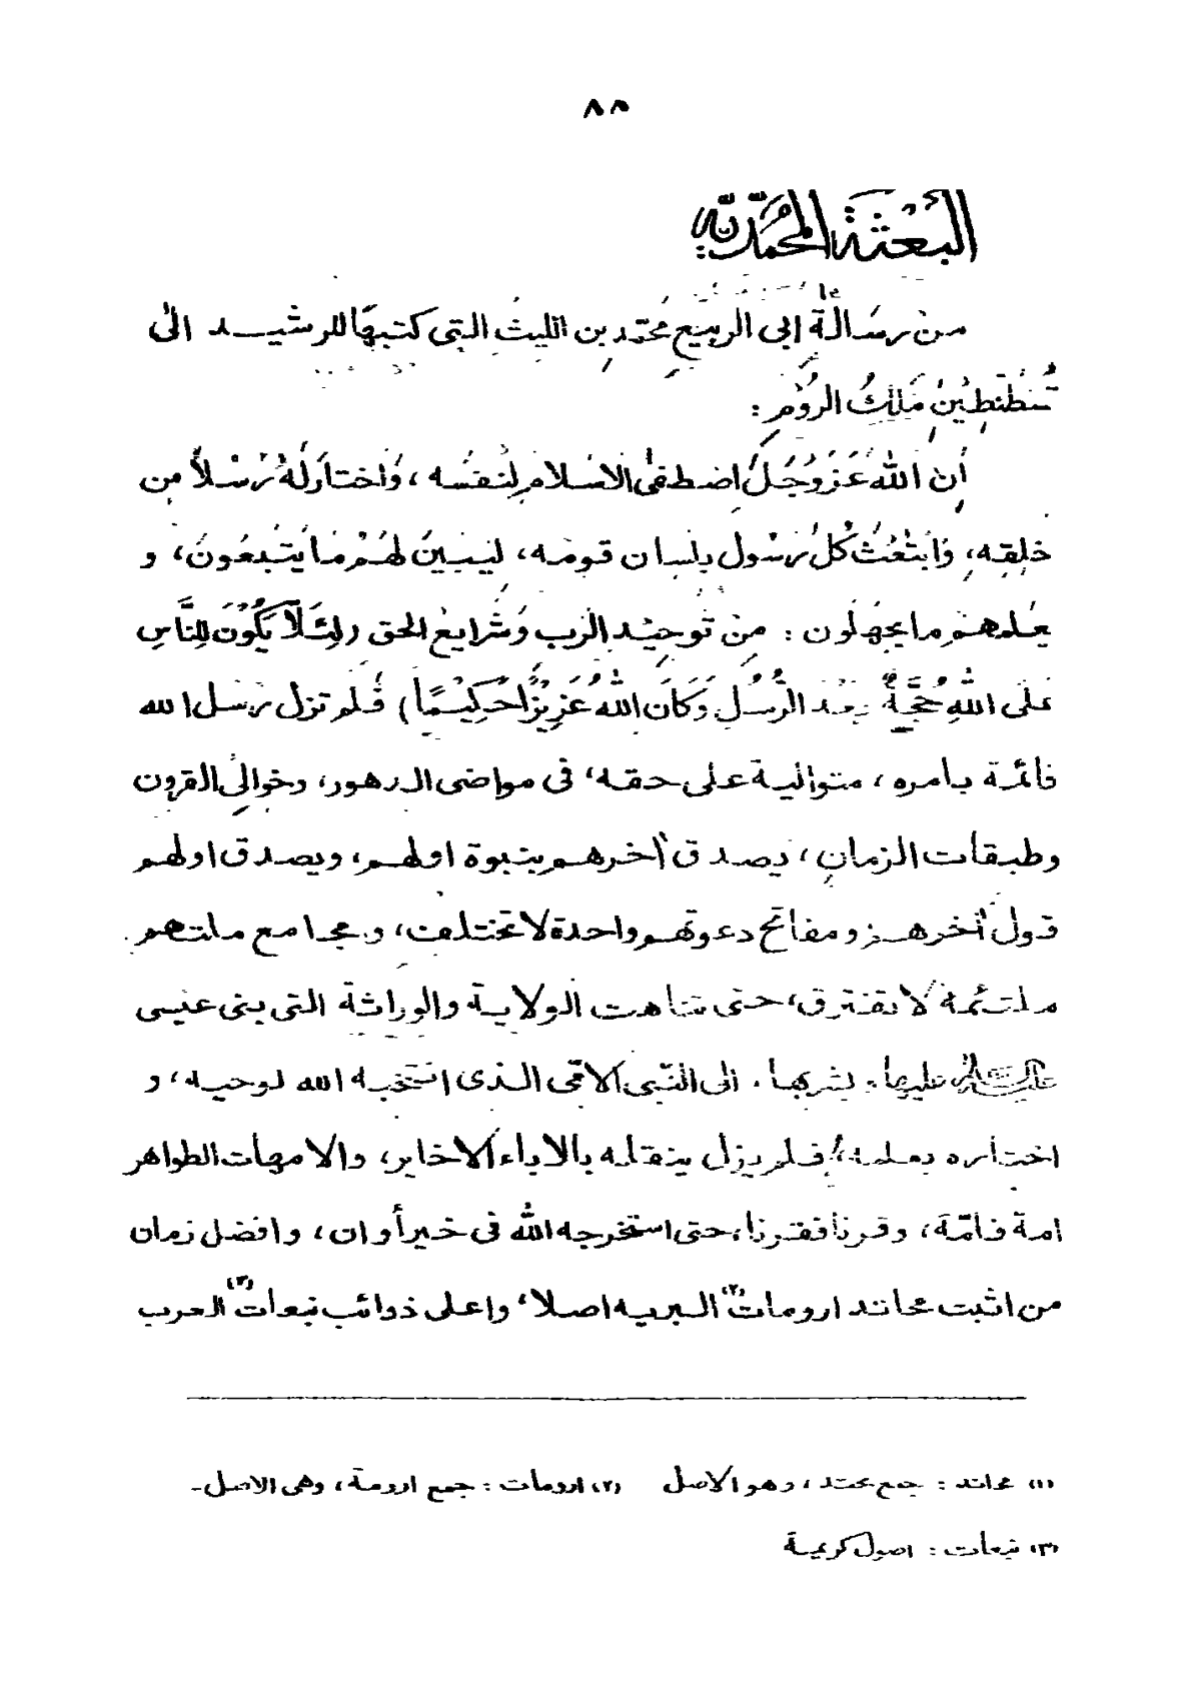 ٨٥
البَعْثَةُ المُحَمَّدِيَّة
من رسَالة ابى الربيع محمّد بن الليث التى كتبهَا للرشيد الىٰ
قُسْطَنْطِيْنِ مَلِكُ الرُوْمِ :
أَن اللهَ عَزَ وَجَلَ اصْطفىٰ الاسْلامَ لِنفسْه ، وَاختَارَ لَهُ رُسْلاً من
خلِقِه، وَابْتَعَثَ كُلَ رَسْول بلسان قومْه، ليُبينَ لهُمْ مَا يَتَبعُونَ، و
يعْلمهمْ ما يجهَلون : منْ تَوحيْد الرَب وَشَرايعْ الحق (لِئَلَّا يَكُوْنَ لِلنَّاسِ
عَلَى اللهِ حُجَّةٌ بَعْدَ الرُّسُلِ وَكَانَ اللهُ عَزِيْزًا حَكِيْمًا) فَلم تزل رَسَل الله
قائمة بامره ، متوالية على حقه، فى مواضى الدهور، وخوالِى القرون
وطبقات الزمانِ، يصدق آخرهم بنبوة اولهم، ويصدق اولهم
قول آخرهم ومفاتح دعوتهم واحدة لا تختلف، ومجامع ملتهم
ملتئمة لا تفترق، حتى تناهت الولاية والوراثة التى بنى عيسى
عليه السلام عليها، بشربها، الى النّبى الامّى الذى انتخبه الله لوحيه، و
اختاره بعلمه، فلم يزل ينقله بالاباء الاخاير، والامهات الطواهر
امة فامّة، وقرنا فقرنا، حتى استخرجه اللهُ فى خير أوان، وافضل زمان
من اثبت محاتد ارومات(٢) البريه اصلا، واعلى ذوائب نبعات(٣) العرب
(١) محاتد : جمع محتد، وهو الاصل (٢) ارومات : جمع ارومة، وهى الاصل-
(٣) نبعات : اصول كريمة